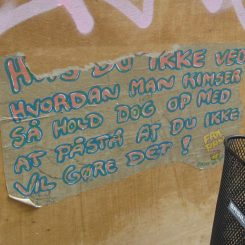 HVIS DU IKKE VED
HVORDAN MAN KIMSER
SÅ HOLD DOG OP MED
AT PÅSTÅ AT DU IKKE
VIL GØRE DET!